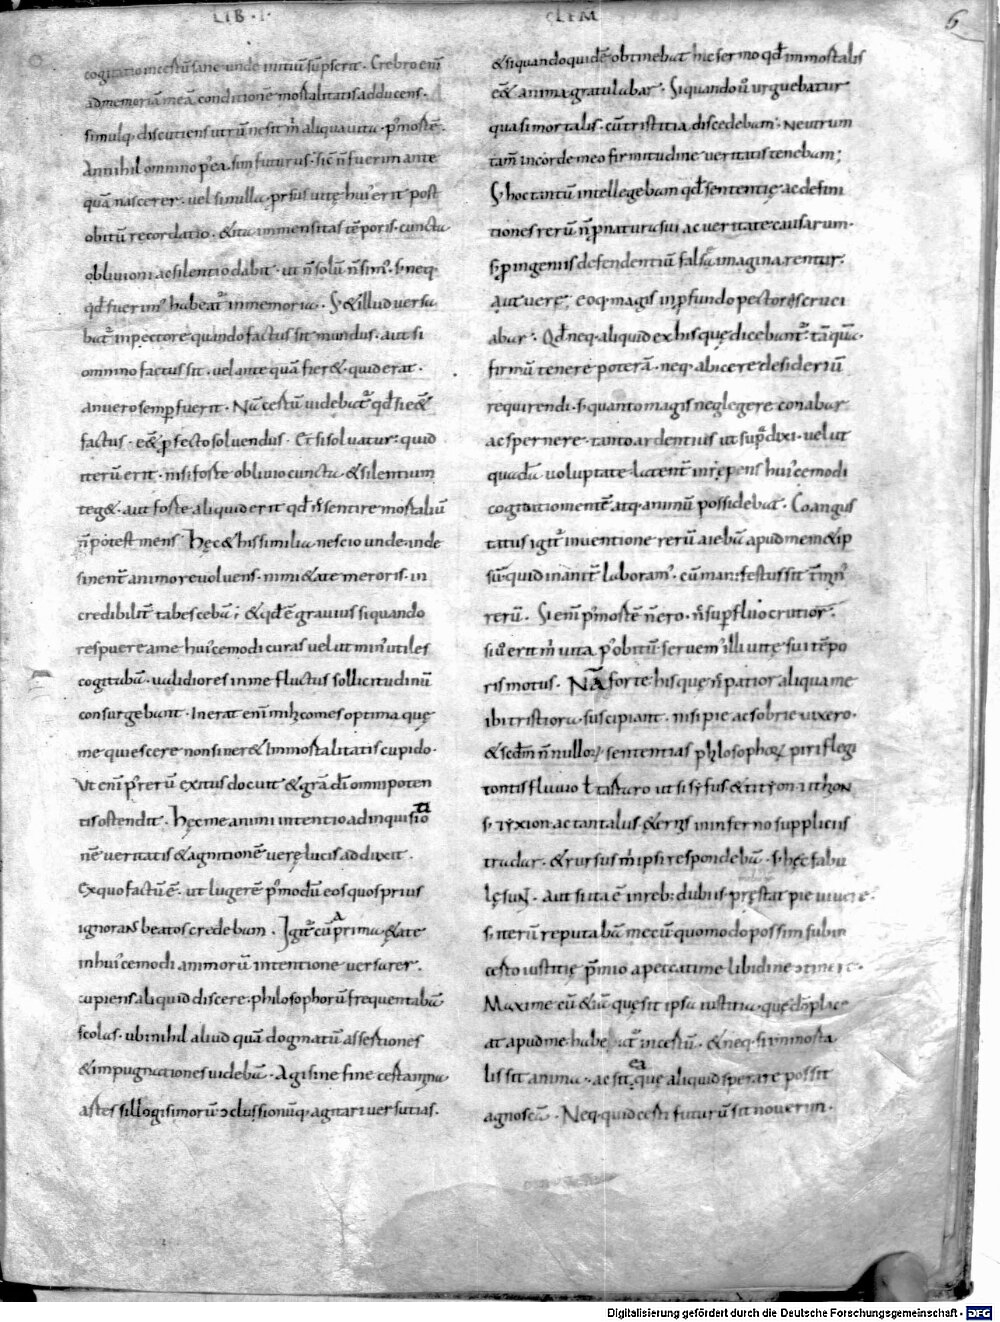 LIB · I ·
CLEM
6
cogitatio incertū sane unde initiū sūpserit · Crebro enī
ad memoriā meā conditione mortalitatis adducens ·
simulq· discutiens utrū ne sit m̄ aliqua uita · p' mortē ·
An nihil omnino p' ea sim futurus · sic n̄ fuerim ante
quā nascerer · uel si nulla prsus uitę hui' erit post
obitū recordatio · & ita immensitas tēporis · cuncta
obliuioni ac silentio dabit · ut n̄ solū n̄ sim' · s· neq·
qd̄ fuerim' habeat' in memoria · S; & illud uersa
bat' in pectore quando factus sit mundus · aut si
omnino factus sit · uel ante quā fier& · quid erat ·
an uero semp fuerit · Nā certū uidebat' qd̄ si e&
factus · e& pfecto soluendus · Et si soluatur · quid
iterū erit · nisi forte obliuio cuncta · & silentium
teg& · aut forte aliquid erit qd̄ n̄ sentire mortaliū
n̄ potest mens · Hęc & his similia nescio unde inde
sinent̄ animo reuoluens · nimi&ate meroris · in
credibilit̄ tabescebā ; & qd̄ ē grauius si quando
respuere a me hui'cemodi curas uelut min' utiles
cogitabā · ualidiores in me fluctus sollicitudinū
consurgebant · Inerat enī mihi comes optima quę
me quiescere non siner& Immortalitatis cupido ·
Ut enī p' rerū exitus docuit & grā dī omnipoten
tis ostendit · Hęc me animi intentio ad inquisitio
nē ueritatis & agnitionē uerę lucis adduxit ·
Ex quo factū ē · ut lugerē p' modū eos quos prius
ignorans beatos credebam · Igit' cū a prima &ate
in hui'cemodi animorū intentione uersarer ·
cupiens aliquid discere · philosophorū frequentabā
scolas · ubi nihil aliud quā dogmatū assertiones
& impugnationes uidebā · Agi sine fine certamina
artes sillogismorū ↄclussionūq· agitari uersutias ·
& si quando quidē obtinebat hic sermo qd̄ inmortalis
e& anima gratulabar · Si quando ū urguebatur
quasi mortalis · cū tristitia discedebam · Neutrum
tam̄ in corde meo firmitudine ueritatis tenebam ;
S; hoc tantū intellegebam qd̄ sententię ac defini
tiones rerū n̄ p natura sui ac ueritate causarum ·
s· p ingeniis defendentiū falsa imaginarentur ·
Aut uere ; eoq· magis in pfundo pectoris crucį
abar · Qd̄ neq· aliquid ex his quę dicebant' tāquā
firmū tenere poterā · neq· abicere desideriū
requirendi · s· quanto magis neglegere conabar
ac spernere · tanto ardentius ut supra dixi · uelut
quadā uoluptate latent̄ inrepens hui'cemodi
cogitatio mentē atq· animū possidebat · Coangus
tatus igit' inuentione rerū aiebā apud mem&ip
sū · quid inanit̄ laboram' · cū manifestus sit t̄min'
rerū · Si enī p' mortē n̄ ero · n̄ supfluo crutior ·
si ū erit m̄ uita p' obitū · seruem' illi uitę sui tēpo
ris motus · Nā forte his quę n̄ patior aliqua me
ibi tristiora suscipiant · nisi pie ac sobrie uixero ·
& scdm̄ n̄nullor sententias phylosophor piriflegi
tontis fluuio t tartaro ut sisyfus & tityon · ithon
s· yxion ac tantalus & eris in inferno suppliciis
tradar · & rursus m̄ ipsi respondebā · s· hęc fabu
lę sunt · Aut si ita ē in reb; dubiis pręstat pie uiuere ·
s· iterū reputabā mecū quomodo possim sub in
certo iustitię p̄mio a peccati me libidine ↄtinere ·
Maxime cū & ā quę sit ipsa iustitia quę dō place
at apud me habeat' incertū · & neq· si inmorta
lis sit anima · ac si ea quę aliquid sperare possit
agnoscā · Neq· quid certi futurū sit nouerim ·
Digitalisierung gefördert durch die Deutsche Forschungsgemeinschaft - DFG